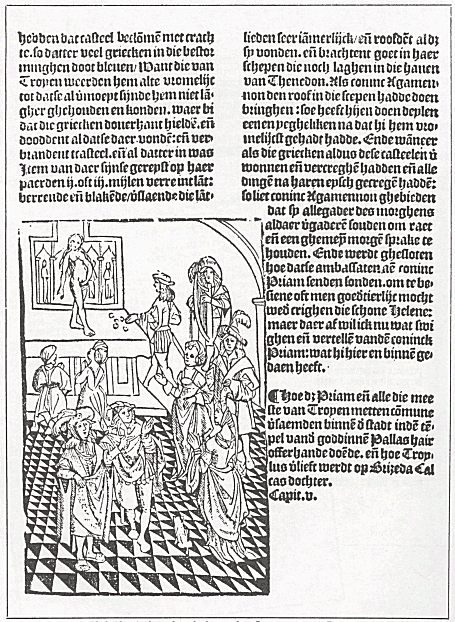 hebben dat casteel beclōmē met crach
te. so datter veel griecken in die bestor
minghen doot bleuen/ Want die van
Troyen weerden hem alte vromelijc
tot datse al vmoeyt sijnde hem niet lā-
gher ghehouden en konden. waer bi
dat die griecken douerhant hieldē. eñ
dooddent al datse daer vondē: eñ ver-
brandent tcasteel. eñ al datter in was
Item van daer sijnse gereyst op haer
paerden ij. oft iij. mijlen verre int lāt:
berrende eñ blakēde/ vslaende die lāt-
lieden seer iāmerlijck/ eñ roofdēt al dz
sy vonden. eñ brachtent goet in haer
schepen die noch laghen in die hauen
van Thenedon. Als coninc Agamen-
non den roof in die scepen hadde doen
bringhen: soe heeft hijen doen deylen
eenen yegheliken na dat hi hem vro-
melijcst gehadt hadde. Ende wāneer
als die griecken aldus dese casteelen v
wonnen eñ vercreghē hadden eñ alle
dingē na haren eysch gecregē haddē:
so liet coninc Agamennon ghebieden
dat sy allegader des morghens
aldaer vgaderē souden om raet
eñ een ghemeyn morgē sprake te
houden. Ende wert ghesloten
hoe datse ambassaten aē coninc
Priam senden souden. om te be-
siene oft men goedtierlijc mocht
wed crighen die schone Helene:
maer daer af wil ick nu wat swi
ghen eñ vertellē vandē coninck
Priam: wat hi hier en binnē ge-
daen heeft.
¶ Hoe dz Priam eñ alle die mee
ste van Troyen metten cōmune
vsaemden binnē d stadt indē tē-
pel vand goddinnē Pallas hair
offerhande doēde. eñ hoe Troy-
lus vlieft werdt op Brizeda Cal
cas dochter.
Capit. v.